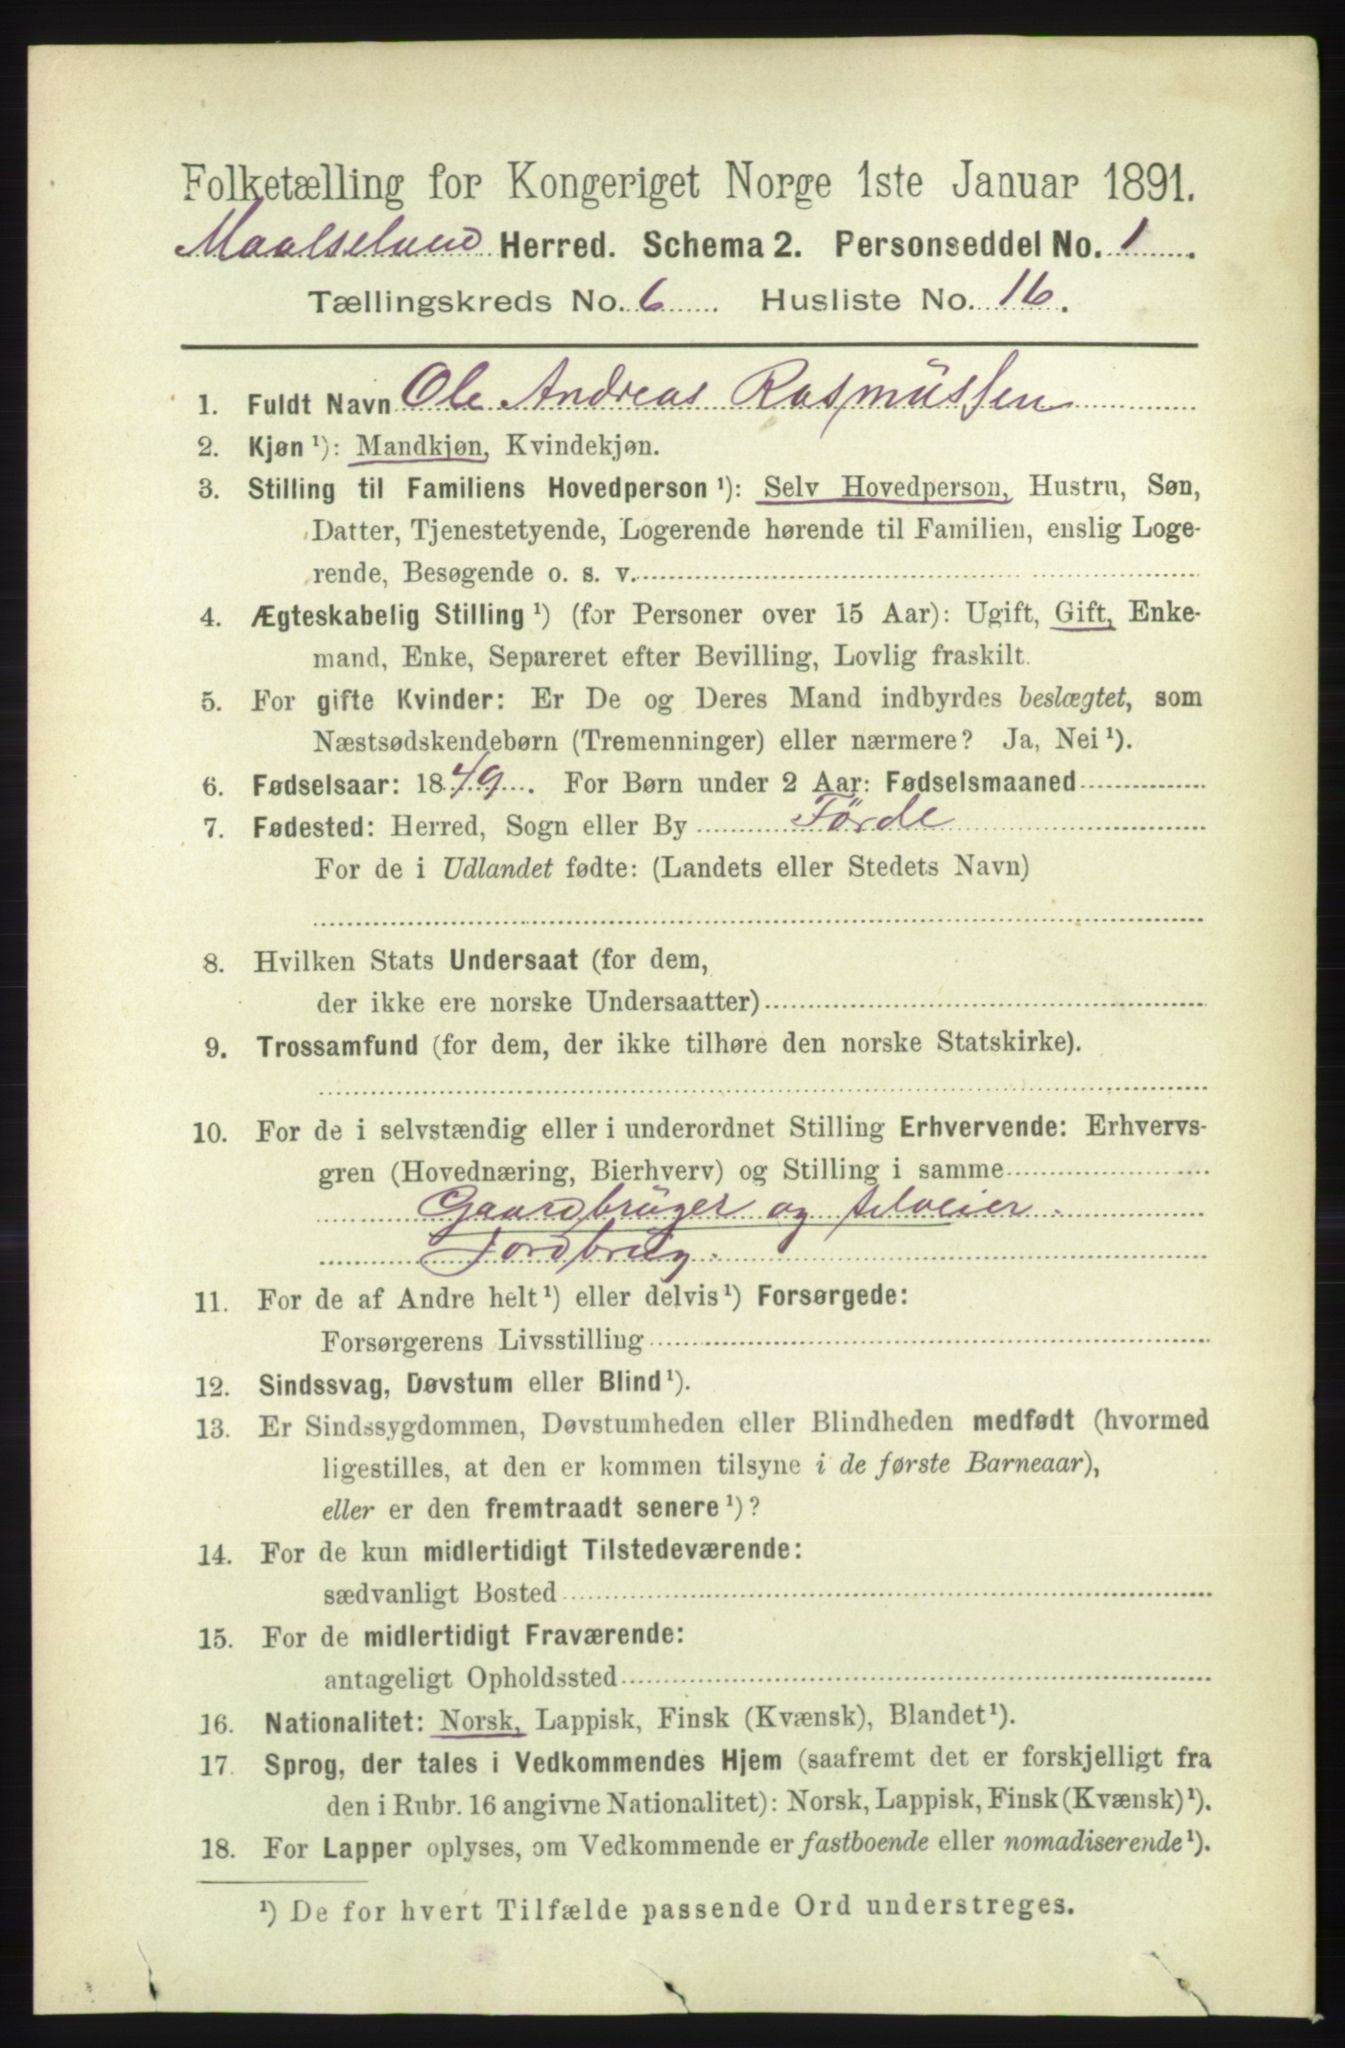 Folketælling for Kongeriget Norge 1ste Januar 1891.
Maalselven Herred. Schema 2. Personseddel No. 1.
Tællingskreds No. 6. Husliste No. 16.
1. Fuldt Navn Ole Andreas Rasmüssen
2. Kjøn ¹): Mandkjøn, Kvindekjøn.
3. Stilling til Familiens Hovedperson ¹): Selv Hovedperson, Hustru, Søn,
Datter, Tjenestetyende, Logerende hørende til Familien, enslig Loge-
rende, Besøgende o. s. v.
4. Ægteskabelig Stilling ¹) (for Personer over 15 Aar): Ugift, Gift, Enke-
mand, Enke, Separeret efter Bevilling, Lovlig fraskilt.
5. For gifte Kvinder: Er De og Deres Mand indbyrdes beslægtet, som
Næstsødskendebørn (Tremenninger) eller nærmere? Ja, Nei ¹).
6. Fødselsaar: 1849. For Børn under 2 Aar: Fødselsmaaned
7. Fødested: Herred, Sogn eller By Förde
For de i Udlandet fødte: (Landets eller Stedets Navn)
8. Hvilken Stats Undersaat (for dem,
der ikke ere norske Undersaatter)
9. Trossamfund (for dem, der ikke tilhøre den norske Statskirke).
10. For de i selvstændig eller i underordnet Stilling Erhvervende: Erhvervs-
gren (Hovednæring, Bierhverv) og Stilling i samme
Gaardbrüger og selveier.
Jordbrug.
11. For de af Andre helt ¹) eller delvis ¹) Forsørgede:
Forsørgerens Livsstilling
12. Sindssvag, Døvstum eller Blind ¹).
13. Er Sindssygdommen, Døvstumheden eller Blindheden medfødt (hvormed
ligestilles, at den er kommen tilsyne i de første Barneaar),
eller er den fremtraadt senere ¹)?
14. For de kun midlertidigt Tilstedeværende:
sædvanligt Bosted
15. For de midlertidigt Fraværende:
antageligt Opholdssted
16. Nationalitet: Norsk, Lappisk, Finsk (Kvænsk), Blandet ¹).
17. Sprog, der tales i Vedkommendes Hjem (saafremt det er forskjelligt fra
den i Rubr. 16 angivne Nationalitet): Norsk, Lappisk, Finsk (Kvænsk) ¹).
18. For Lapper oplyses, om Vedkommende er fastboende eller nomadiserende ¹).
¹) De for hvert Tilfælde passende Ord understreges.